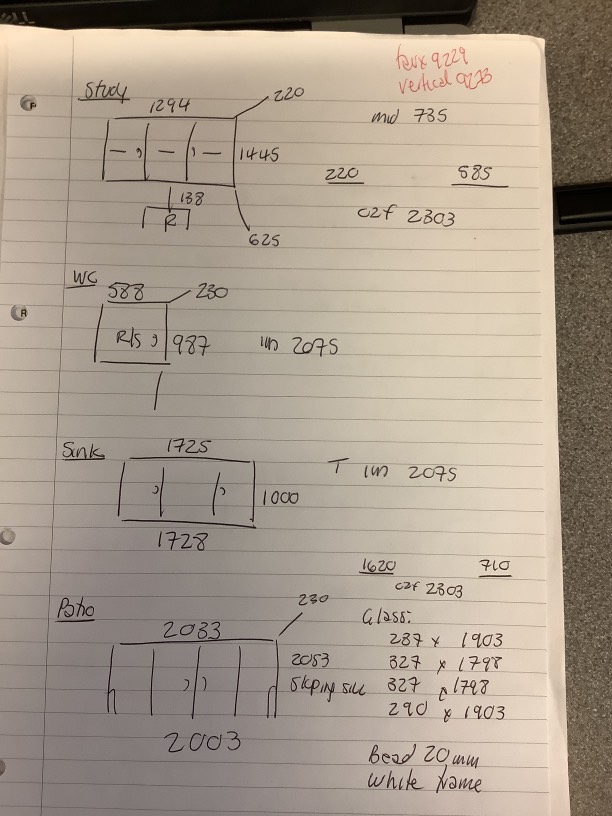 faux 9229
vertical 9273
Study
1294
220
mid 735
1445
220
585
138
R
c2f 2303
625
WC
588
230
R/S
987
un 2075
Sink
1725
T un 2075
1000
1728
1620
710
c2f 2303
Patio
230
Glass:
2033
287 x 1903
2053
327 x 1798
Sloping sill
327 x 1798
290 x 1903
2003
Bead 20mm
White frame